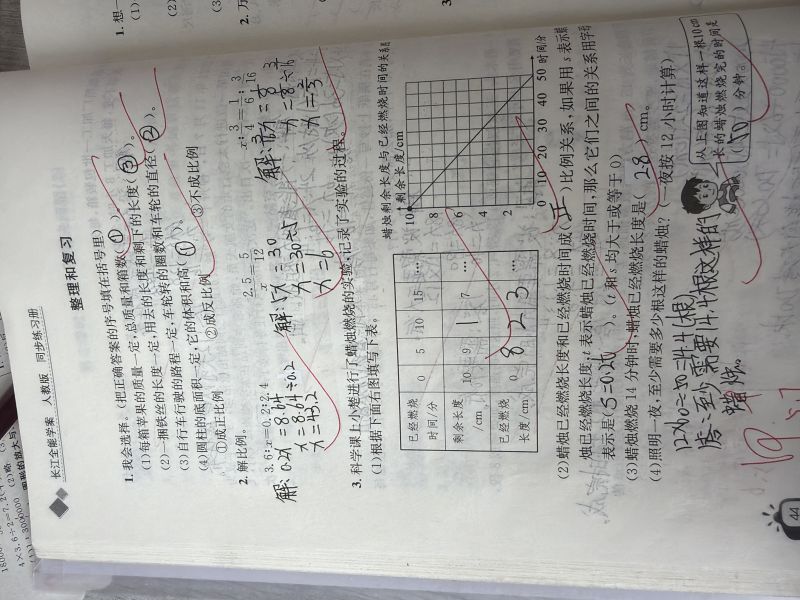 长江全能学案 人教版 同步练习册
整理和复习
1. 我会选择。(把正确答案的序号填在括号里)
(1)每箱苹果的质量一定,总质量和箱数(①)。
(2)一捆铁丝的长度一定,用去的长度和剩下的长度(③)。
(3)自行车行驶的路程一定,车轮转的圈数和车轮的直径(②)。
(4)圆柱的底面积一定,它的体积和高(①)。
①成正比例 ②成反比例 ③不成比例
2. 解比例。
3.6:x=0.2:2.4
解: 0.2x=8.64
x=8.64÷0.2
x=43.2
2.5/x=5/12
解: 5x=30
x=30÷5
x=6
x:3/4=1/6:3/16
3. 科学课上小楚进行了蜡烛燃烧的实验,记录了实验的过程。
(1)根据下面右图填写下表。
已经燃烧时间/分 0 5 10 15 …
剩余长度/cm 10 9 1 7 …
已经燃烧长度/cm 0 8 2 3 …
蜡烛剩余长度与已经燃烧时间的关系
剩余长度/cm
10
8
6
4
2
0 10 20 30 40 50 时间/分
(2)蜡烛已经燃烧长度和已经燃烧时间成(正)比例关系,如果用 s 表示
烛已经燃烧长度,t 表示蜡烛已经燃烧时间,那么它们之间的关系用字
表示是(S=0.2t)。(t 和 s 均大于或等于 0)
(3)蜡烛燃烧 14 分钟时,蜡烛已经燃烧长度是(2.8)cm。
(4)照明一夜,至少需要多少根这样的蜡烛?(一夜按 12 小时计算)
从上图知道这样一根10cm
长的蜡烛燃烧完的时间是
(50)分钟。
答:至少需要
蜡烛。
44